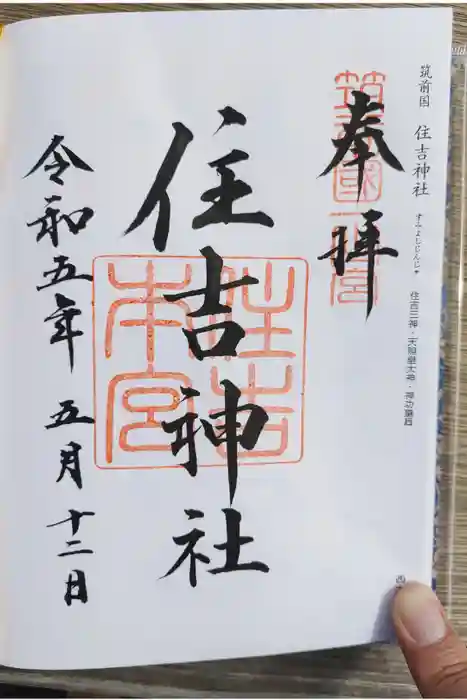 筑前国 住吉神社 すみよしじんじゃ 住吉三神・天照皇大神・神功皇后
奉拝
筑前國一之宮
住吉神社
住吉本宮
令和五年 五月 十二日
西